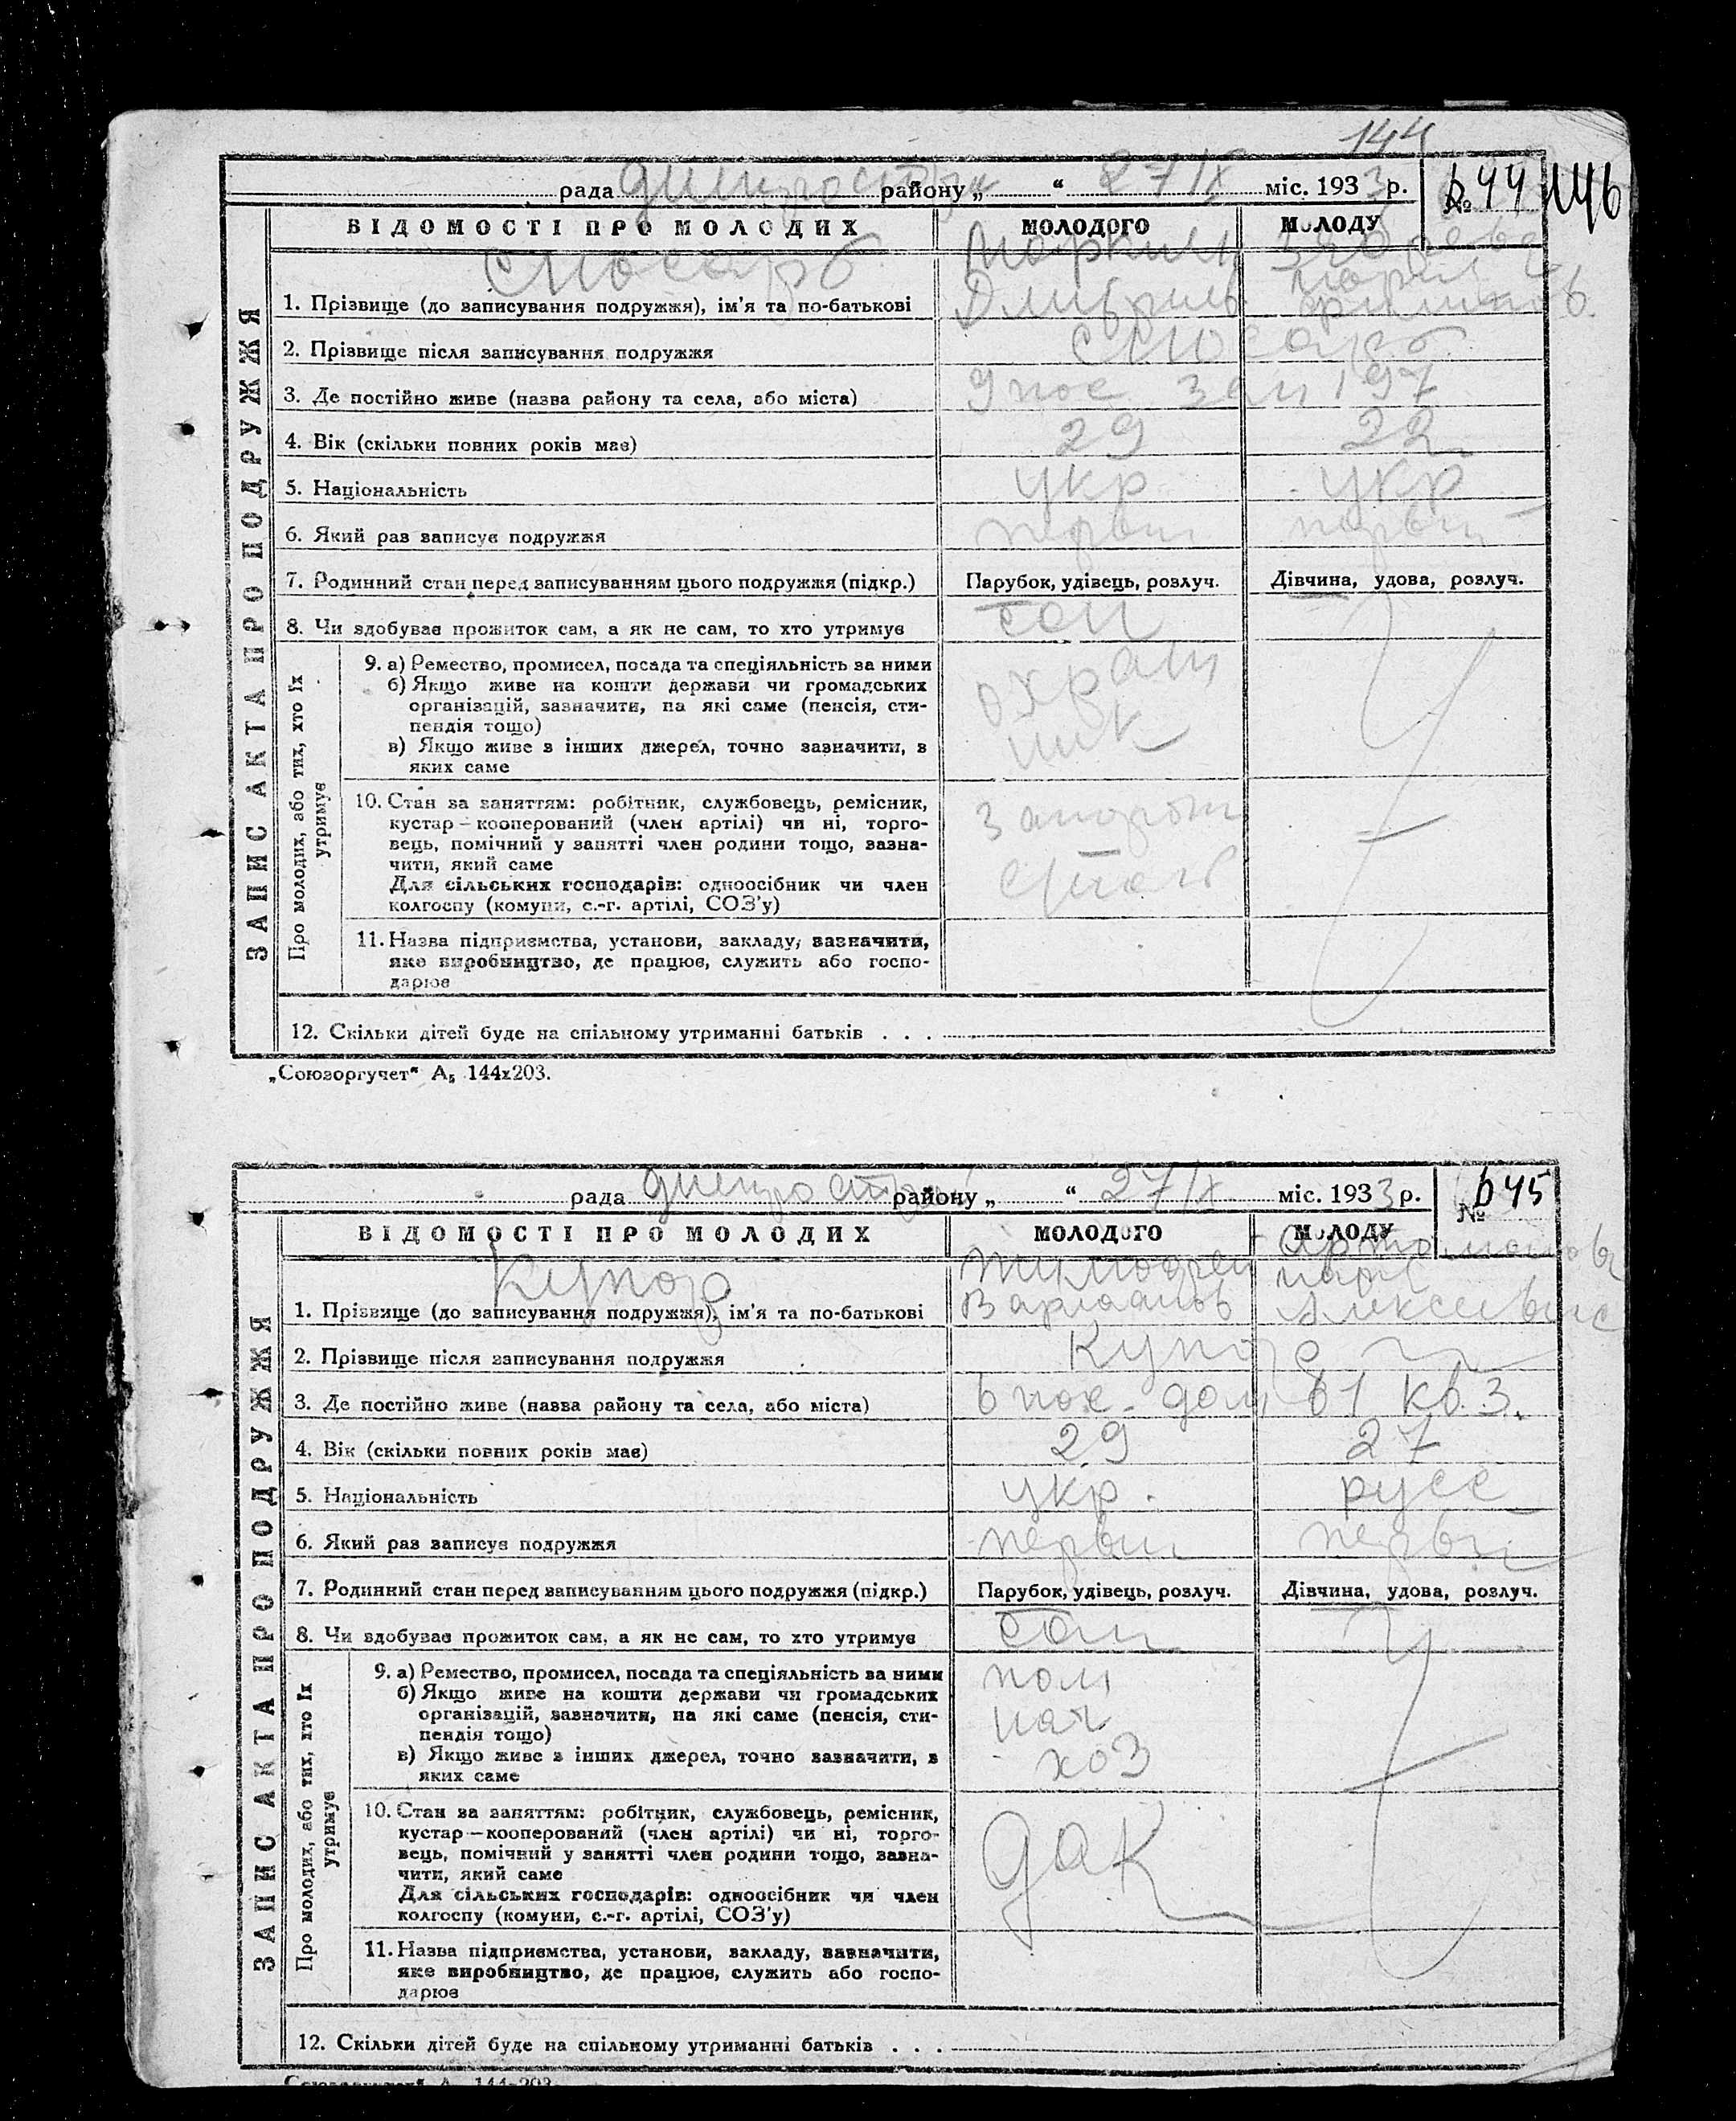 144
рада Днепрострой району „ “ 27/IX міс. 1933 р. № 644 146
ВІДОМОСТІ ПРО МОЛОДИХ МОЛОДОГО МОЛОДУ
ЗАПИС АКТА ПРО ПОДРУЖЖЯ
Слюсарь
1. Прізвище (до записування подружжя), ім’я та по-батькові
2. Прізвище після записування подружжя Слюсарь
3. Де постійно живе (назва району та села, або міста) 9 пос. зем 197
4. Вік (скільки повних років має) 29 22
5. Національність укр укр
6. Який раз записує подружжя первый первый
7. Родинний стан перед записуванням цього подружжя (підкр.) Парубок, удівець, розлуч. Дівчина, удова, розлуч.
8. Чи здобуває прожиток сам, а як не сам, то хто утримує сам
Про молодих, або тих, хто їх утримує
9. а) Ремество, промисел, посада та спеціяльність за ними
б) Якщо живе на кошти держави чи громадських
організацій, зазначити, на які саме (пенсія, сти-
пендія тощо)
в) Якщо живе з інших джерел, точно зазначити, з
яких саме
охран
ник
10. Стан за заняттям: робітник, службовець, ремісник,
кустар – кооперований (член артілі) чи ні, торго-
вець, помічний у занятті член родини тощо, зазна-
чити, який саме
Для сільських господарів: одноосібник чи член
колгоспу (комуни, с.-г. артілі, СОЗ’у)
Запорож
сталь
11. Назва підприємства, установи, закладу, зазначити,
яке виробництво, де працює, служить або госпо-
дарює
12. Скільки дітей буде на спільному утриманні батьків . . .
„Союзоргучет“ А₅ 144х203.
рада Днепрострой району „ “ 27/IX міс. 1933 р. № 645
ВІДОМОСТІ ПРО МОЛОДИХ МОЛОДОГО МОЛОДУ
ЗАПИС АКТА ПРО ПОДРУЖЖЯ
Купор Тимофей
1. Прізвище (до записування подружжя), ім’я та по-батькові Алексеевне
2. Прізвище після записування подружжя Купор
3. Де постійно живе (назва району та села, або міста) 6 пос. дом 61 кв. 3.
4. Вік (скільки повних років має) 29 27
5. Національність укр. русс
6. Який раз записує подружжя первый первый
7. Родинний стан перед записуванням цього подружжя (підкр.) Парубок, удівець, розлуч. Дівчина, удова, розлуч.
8. Чи здобуває прожиток сам, а як не сам, то хто утримує сам
Про молодих, або тих, хто їх утримує
9. а) Ремество, промисел, посада та спеціяльність за ними
б) Якщо живе на кошти держави чи громадських
організацій, зазначити, на які саме (пенсія, сти-
пендія тощо)
в) Якщо живе з інших джерел, точно зазначити, з
яких саме
пом
нач
хоз
10. Стан за заняттям: робітник, службовець, ремісник,
кустар – кооперований (член артілі) чи ні, торго-
вець, помічний у занятті член родини тощо, зазна-
чити, який саме
Для сільських господарів: одноосібник чи член
колгоспу (комуни, с.-г. артілі, СОЗ’у)
ДАК
11. Назва підприємства, установи, закладу, зазначити,
яке виробництво, де працює, служить або госпо-
дарює
12. Скільки дітей буде на спільному утриманні батьків . . .